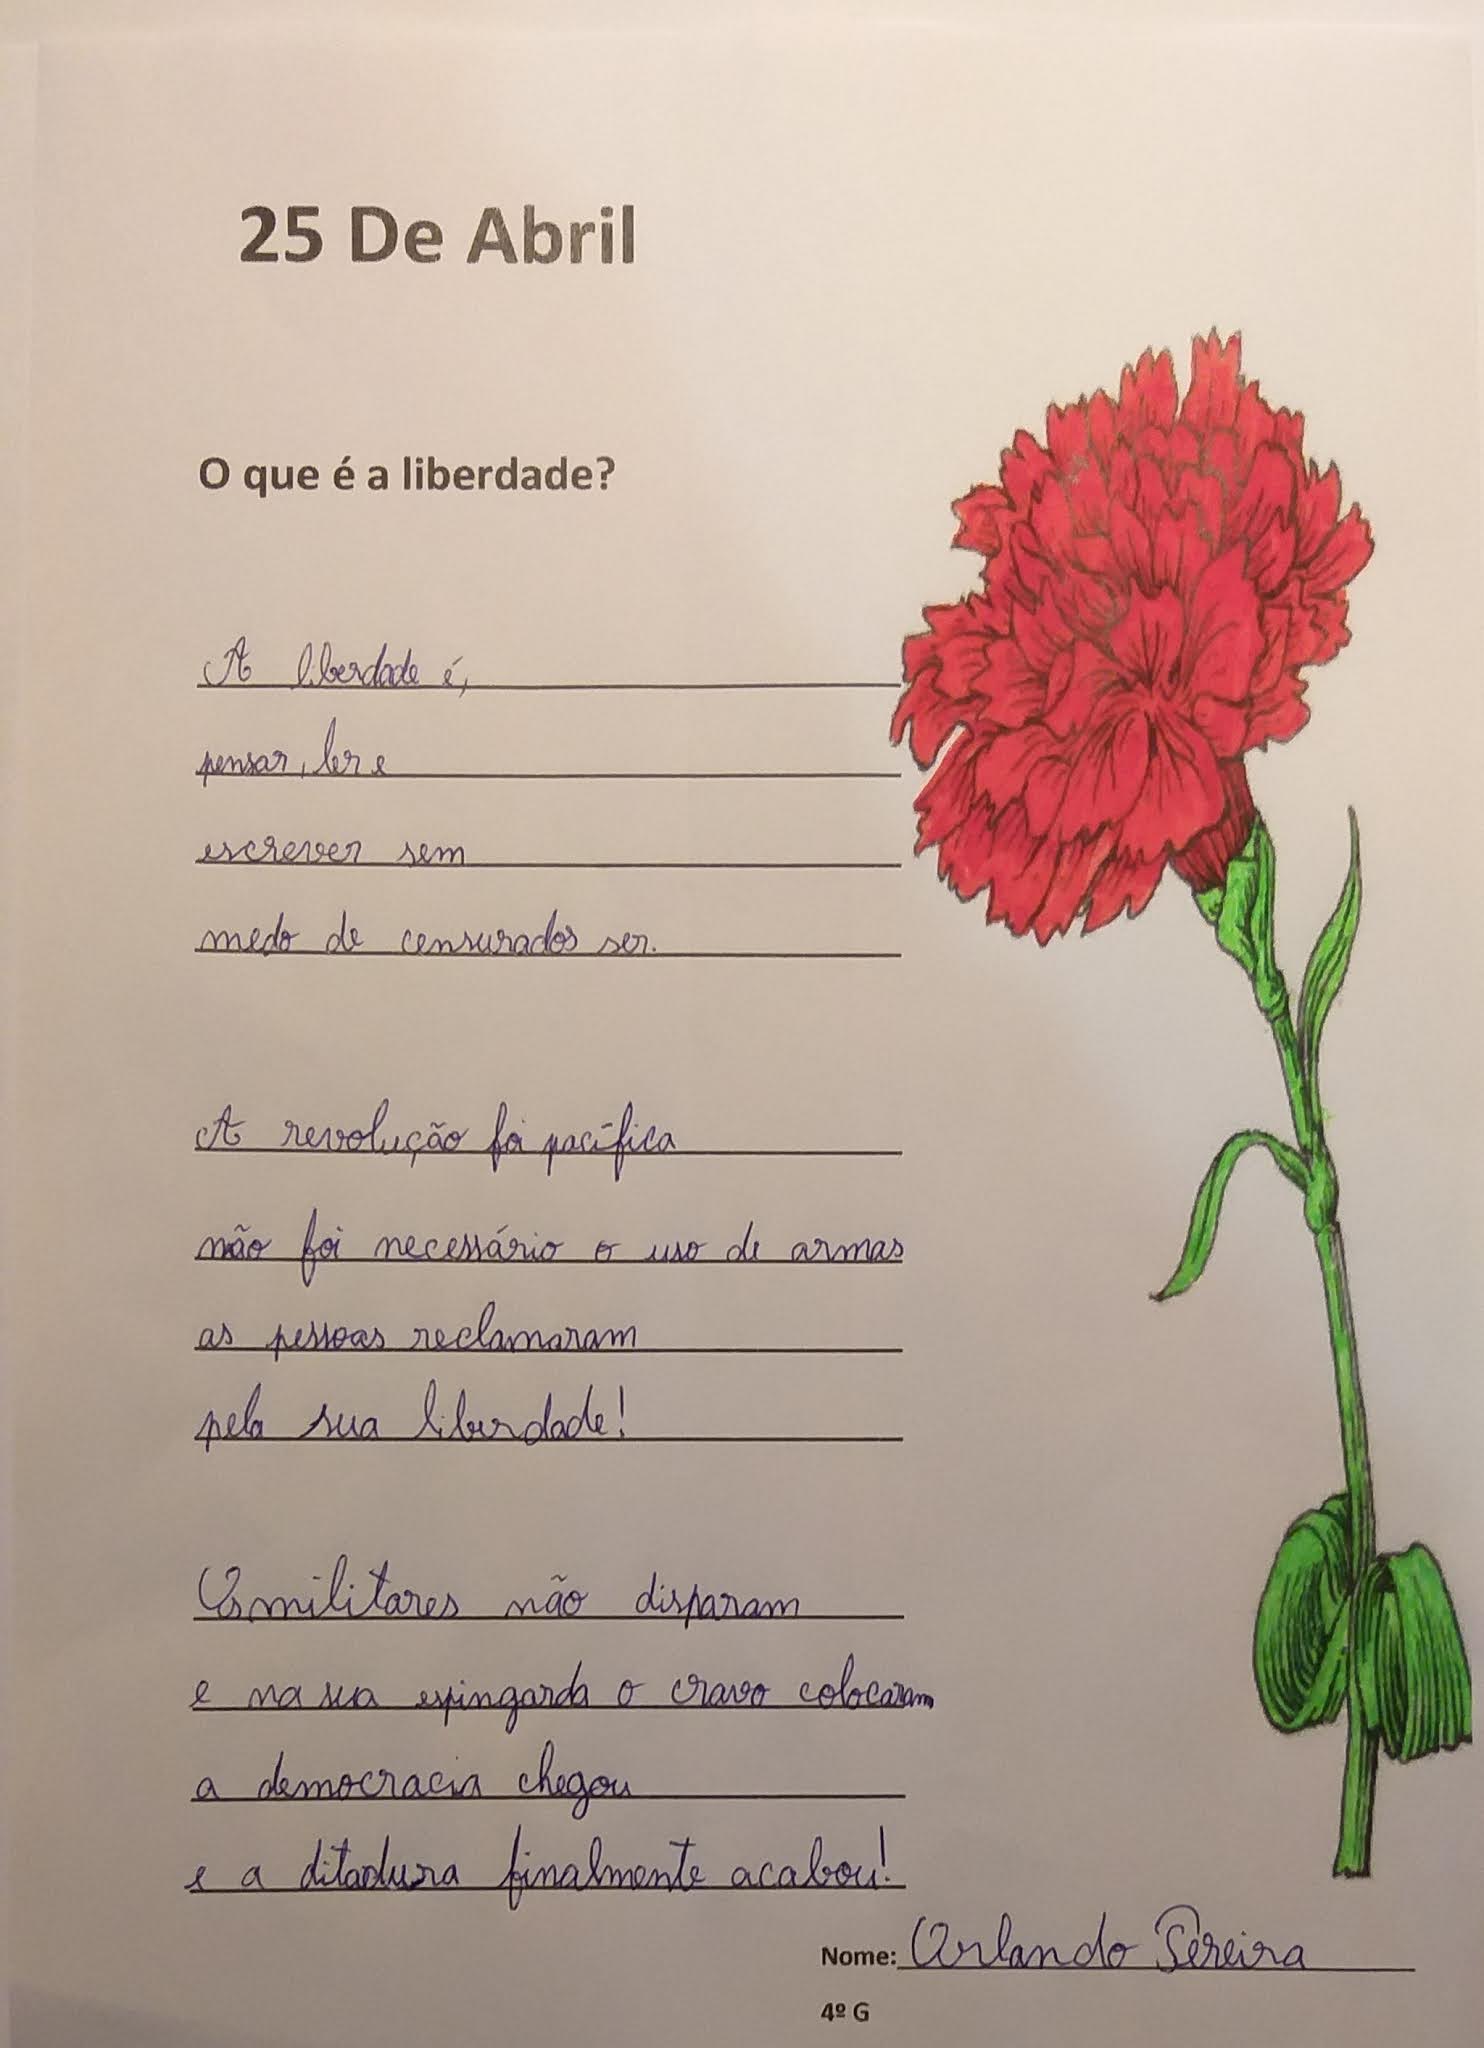 25 De Abril
O que é a liberdade?
A liberdade é,
pensar, ler e
escrever sem
medo de censurados ser.
A revolução foi pacífica
não foi necessário o uso de armas
as pessoas reclamaram
pela sua liberdade!
Os militares não disparam
e na sua espingarda o cravo colocaram
a democracia chegou
e a ditadura finalmente acabou!
Nome: Orlando Pereira
4º G